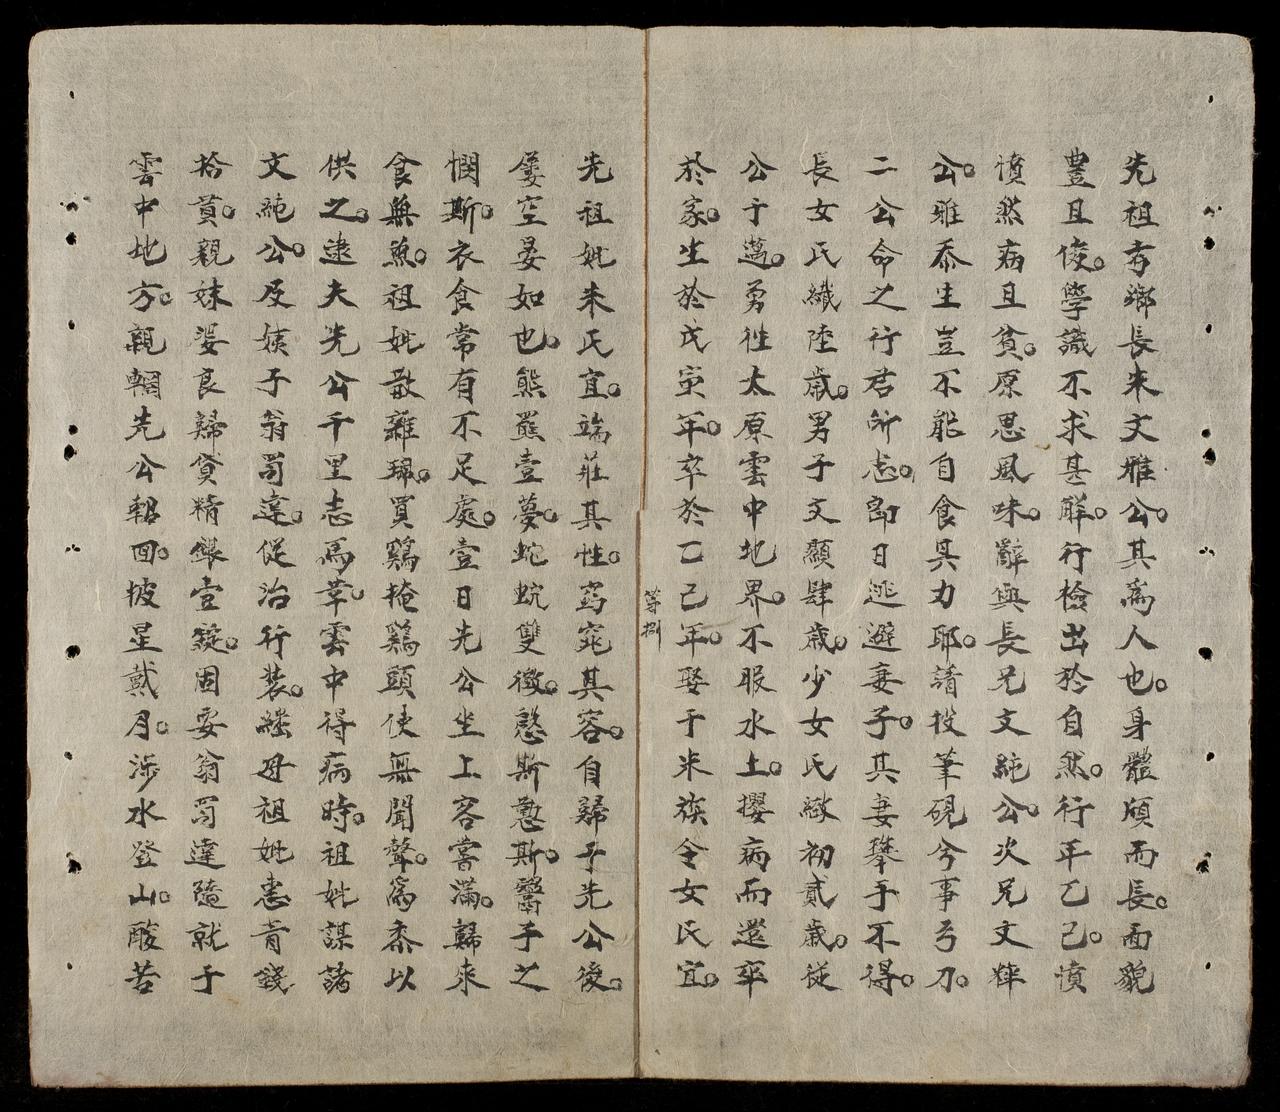 先祖考鄉長朱文雅公。其為人也。身體頎而長。面貌
豊且俊。學識不求甚解。行檢出於自然。行年乙己。憤
憤然病且貧。原思風味。辭與長兄文純公。次兄文粹
公。雅忝生豈不能自食其力耶。請投筆硯兮事弓刀。
二公命之行君所志。即日逃避妻子。其妻攀手不得。
長女氏纖陸歲。男子文顯肆歲。少女氏緻初貳歲。從
公于邁。勇徃太原雲中地界。不服水土。攖病而還卒
於家。生於戊寅年。卒於乙己年。娶于米族令女氏宜。
葶捌
先祖妣朱氏宜。端莊其性。窈窕其容。自歸于先公後。
屢空晏如也。熊羆壹夢。蛇蚖雙徵。慇斯懃斯。鬻子之
憫斯。衣食常有不足處。壹日先公坐上客嘗滿。歸來
食無魚。祖妣散雜珮。買鷄掩鷄頭使無聞聲。為黍以
供之。逮夫先公千里志焉。幸雲中得病時。祖妣謀諸
文純公。及姨子翁苟達。促治行裝。繼母祖妣惠青錢
拾貫。親妹婆良歸貸精銀壹錠。固要翁苟達隨就于
雲中地方。親輞先公軺回。披星戴月。涉水登山。酸苦